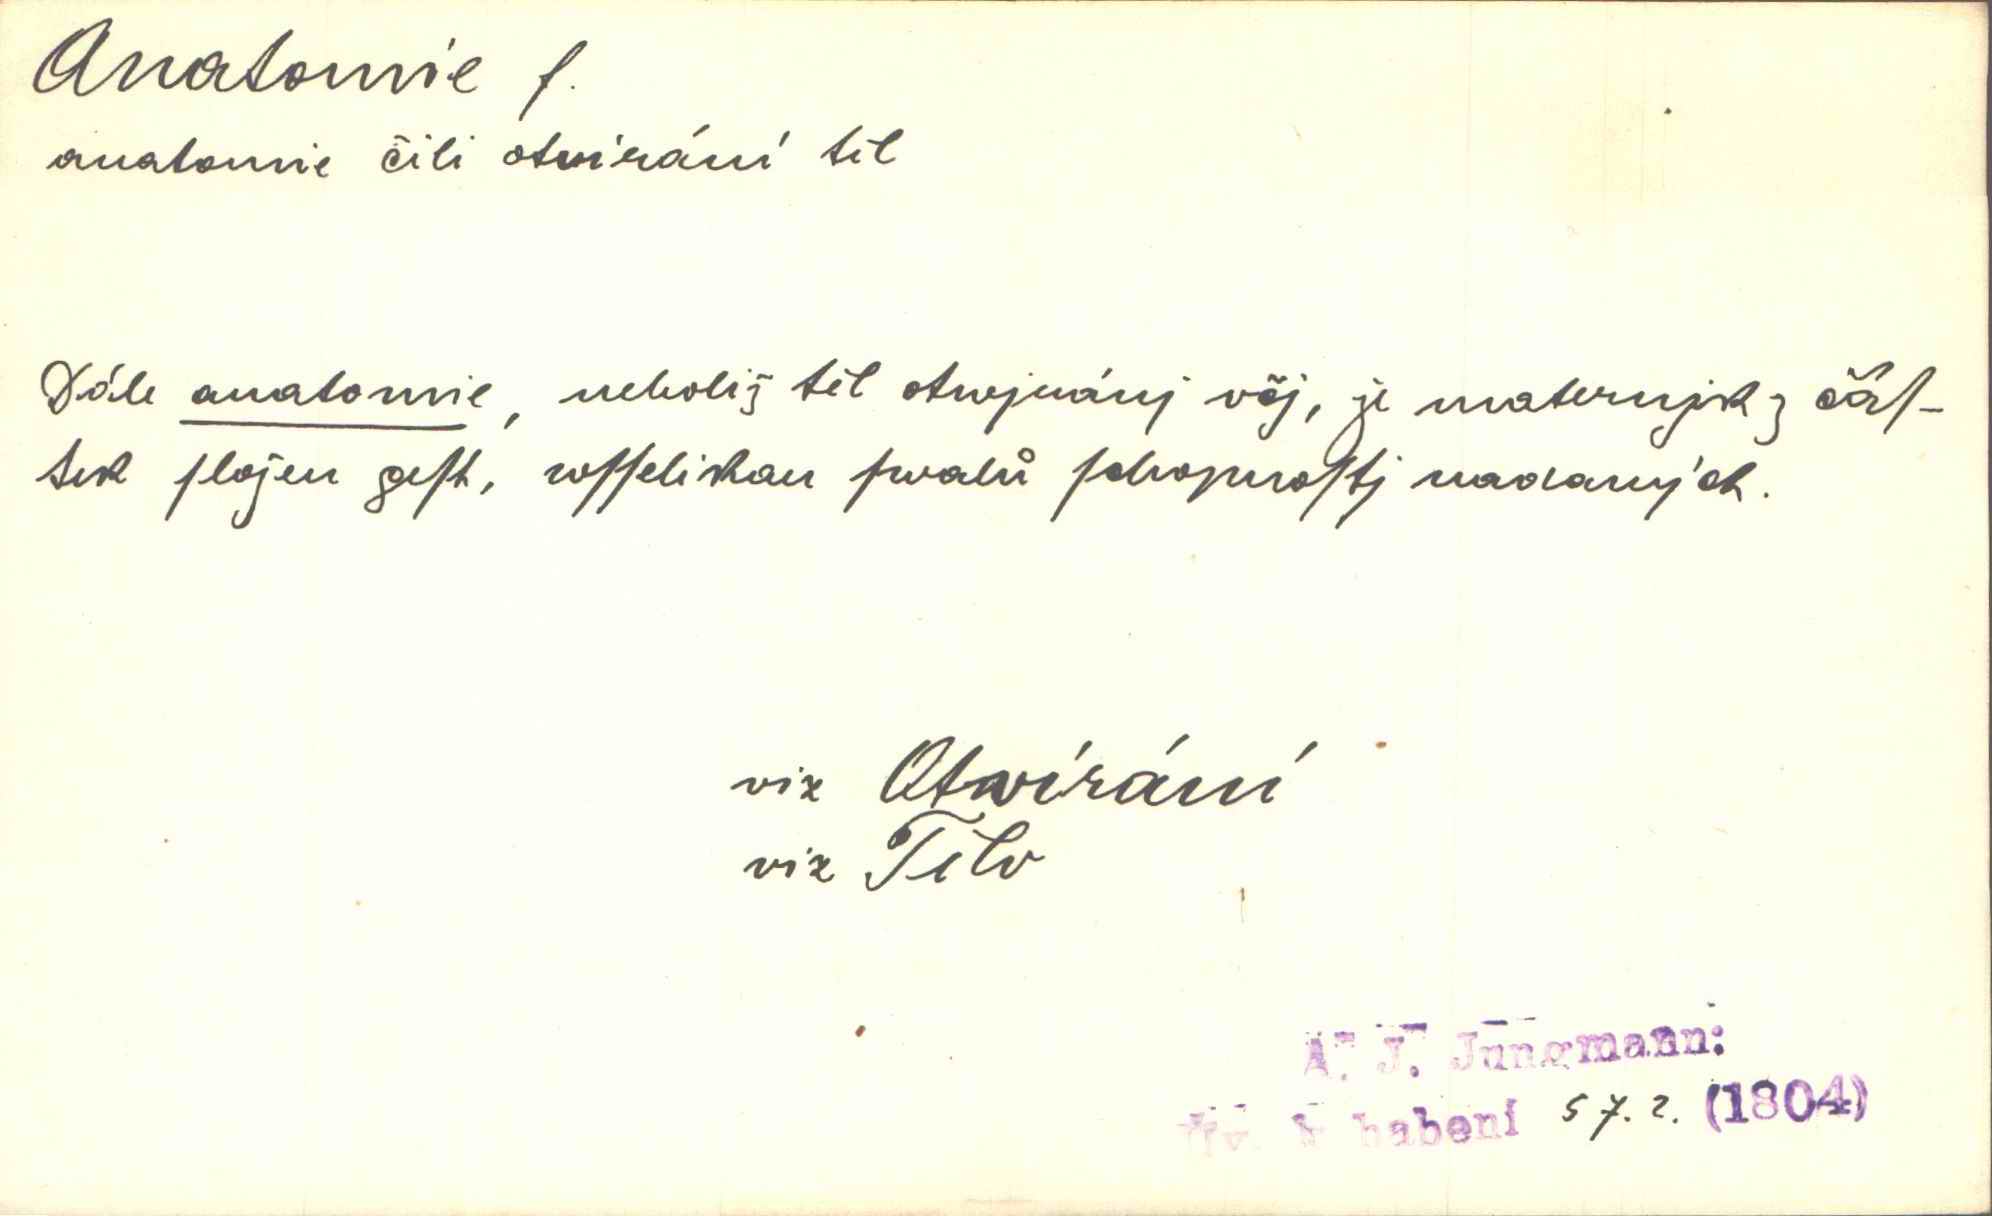 Anatomie f.
anatomie čili otwírání těl
Dále anatomie, neboliž těl otwjránj včj, že maternjk z čás-
tek složen gest, wsselikau swalů schopnostj nadaných.
viz Otwírání
viz Tělo
A. J. Jungmann:
Úv. k babení 57.2. (1804)